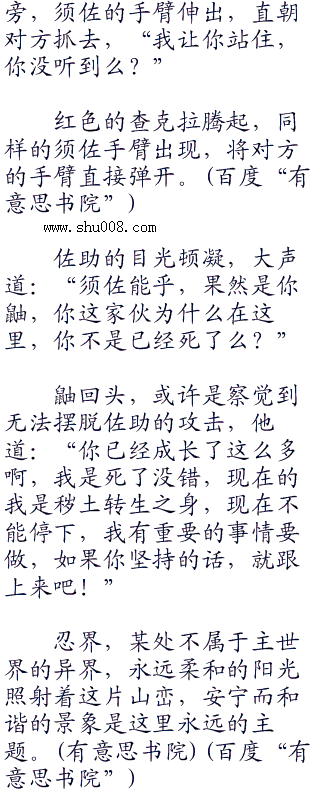 旁，须佐的手臂伸出，直朝
对方抓去，“我让你站住，
你没听到么？”
红色的查克拉腾起，同
样的须佐手臂出现，将对方
的手臂直接弹开。(百度“有
意思书院”)
www.shu008.com
佐助的目光顿凝，大声
道：“须佐能乎，果然是你
鼬，你这家伙为什么在这
里，你不是已经死了么？”
鼬回头，或许是察觉到
无法摆脱佐助的攻击，他
道：“你已经成长了这么多
啊，我是死了没错，现在的
我是秽土转生之身，现在不
能停下，我有重要的事情要
做，如果你坚持的话，就跟
上来吧！”
忍界，某处不属于主世
界的异界，永远柔和的阳光
照射着这片山峦，安宁而和
谐的景象是这里永远的主
题。(有意思书院)(百度“有
意思书院”)